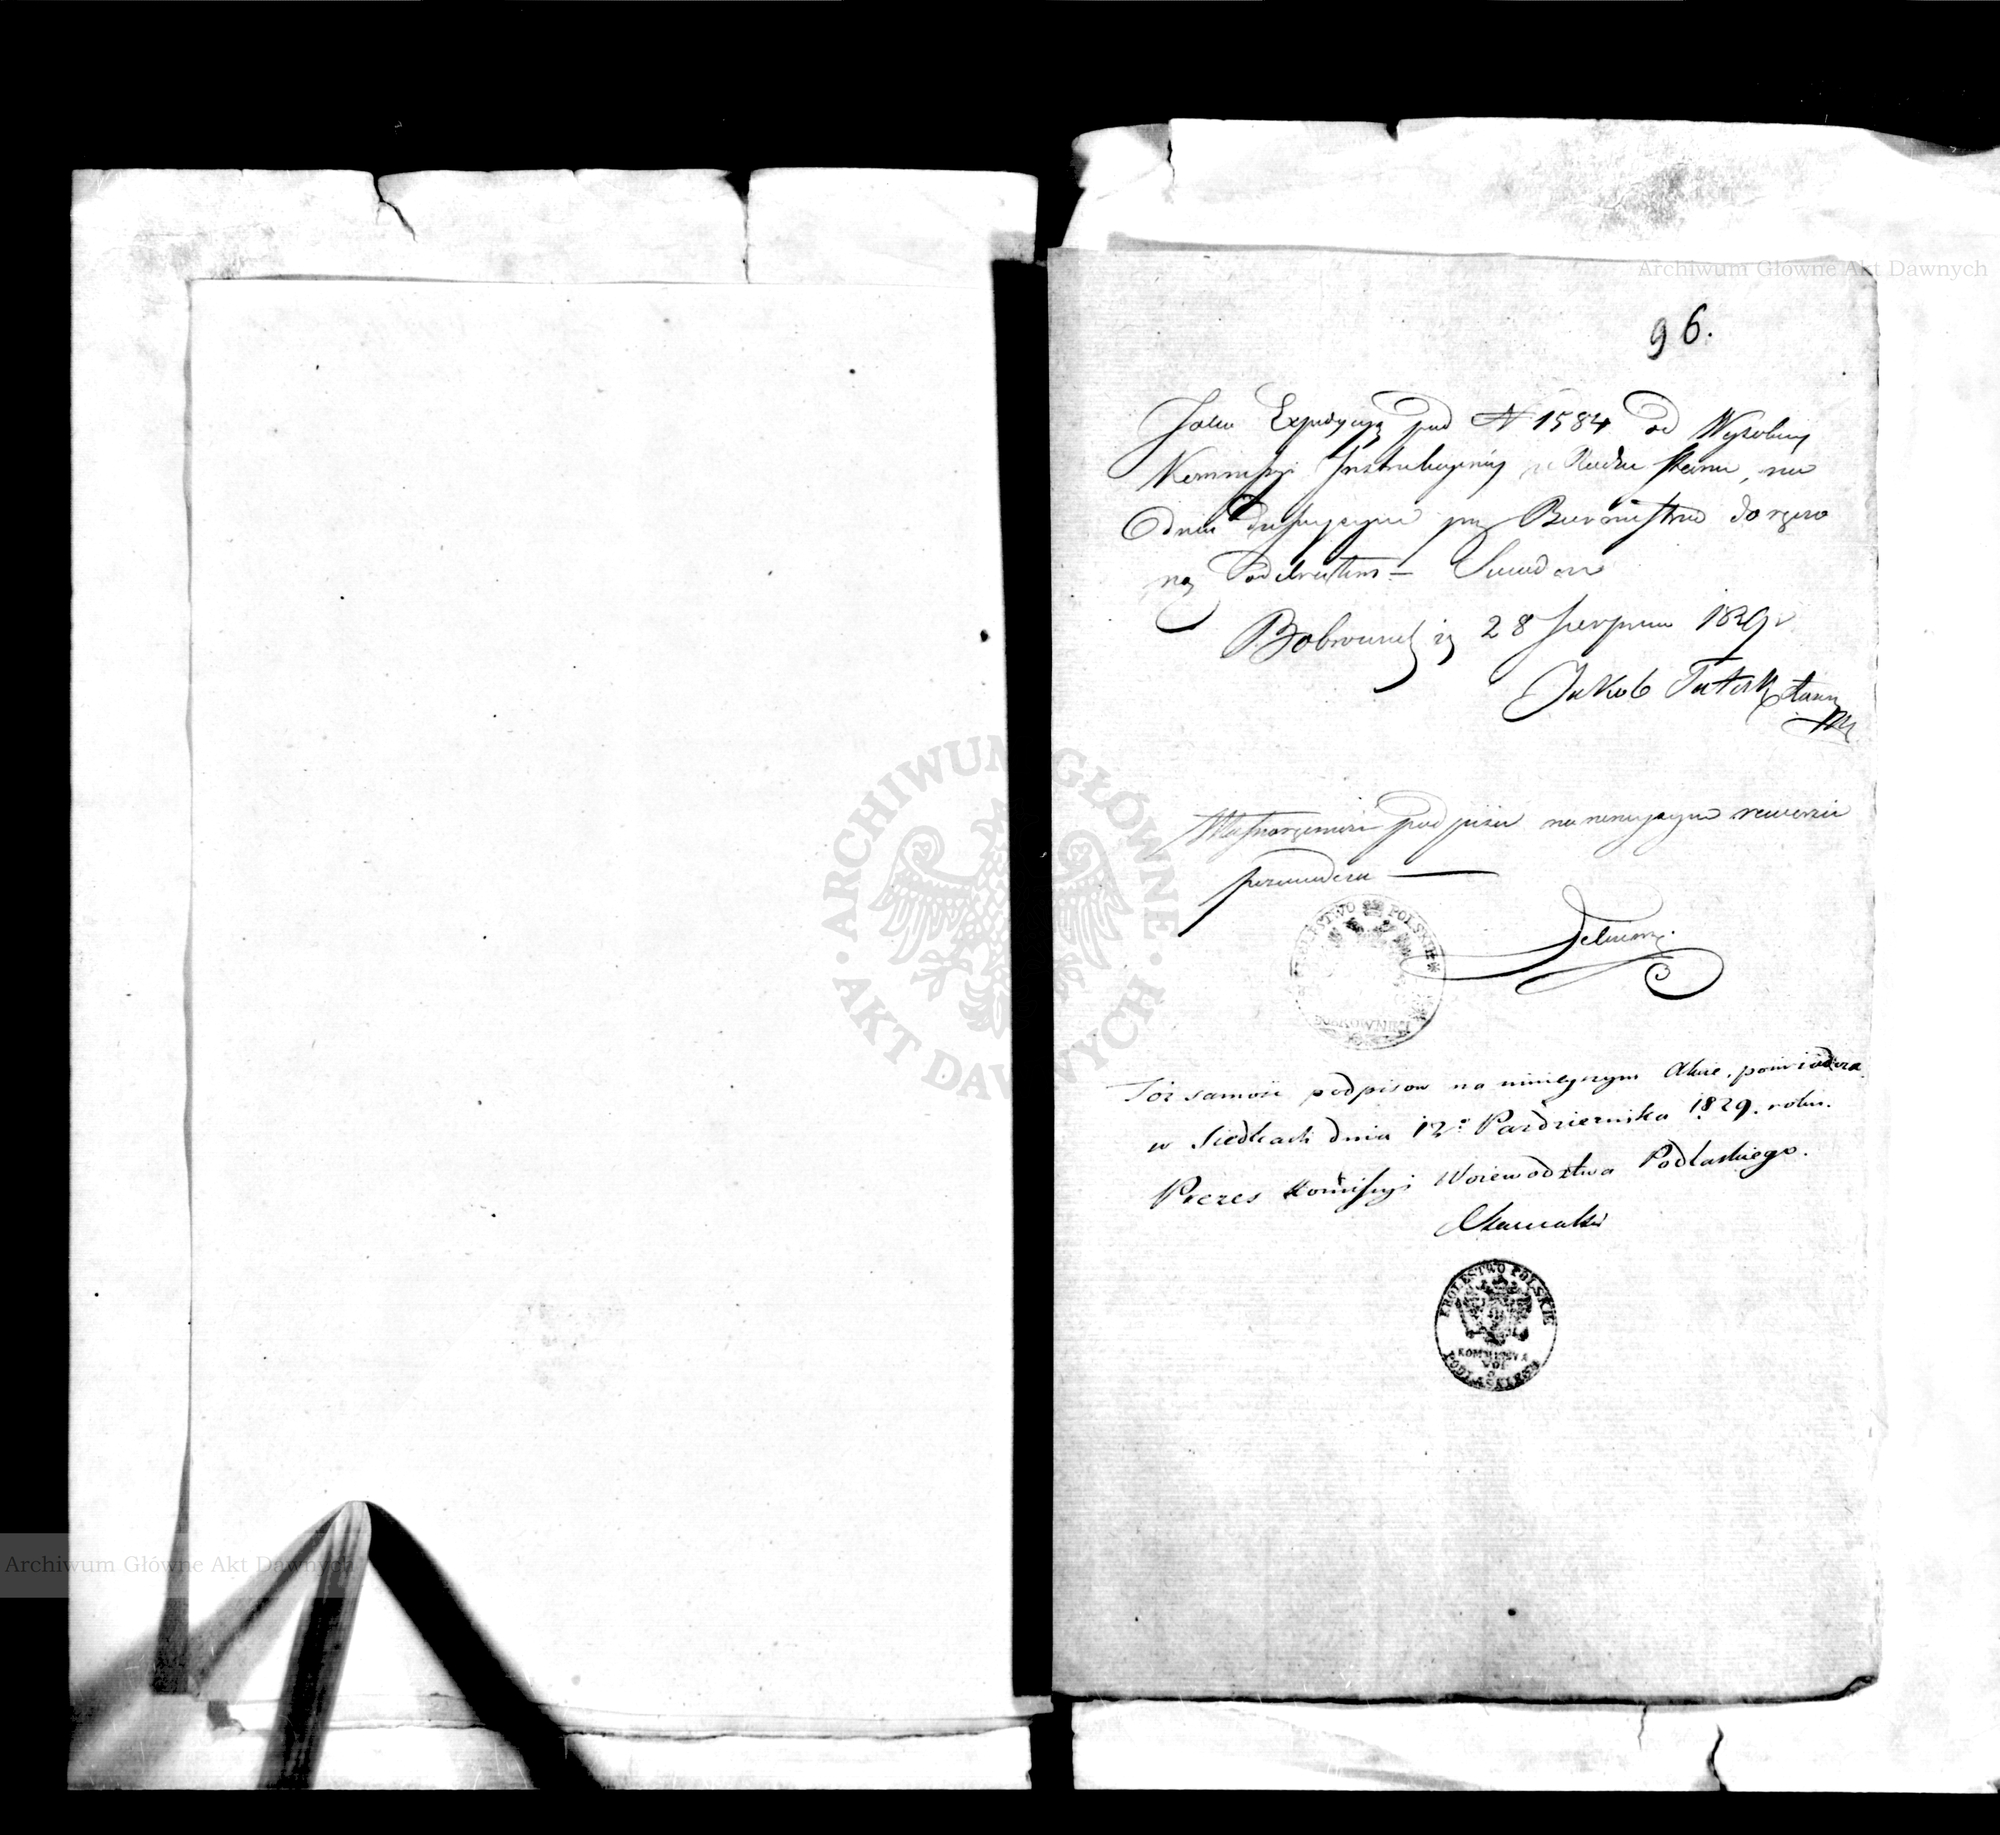 Archiwum Główne Akt Dawnych
96.
Jako Expedycyą pod N 1584 od Wysokiey
Kommissyi Instrukcyiney w Radzie Stanu, na
dniu dzisieyszym przez Burmistrza doręczo
ną odebrałem –
Bobrowniki 28 Sierpnia 1829 r
Jakob
Własnoręczność podpisu na ninieyszym rewersie
poswiadcza
KROLESTWO POLSKIE
BOBROWNIKI
Toż samość podpisow na ninieyszym Akcie, poswiadcza.
w Siedlcach dnia 12º Pazdziernika 1829. roku.
Prezes Komissyi Woiewodztwa Podlaskiego.
KROLESTWO POLSKIE
KOMMISSYA
WOI
PODLASKIEGO
ARCHIWUM GŁÓWNE AKT DAWNYCH
Archiwum Główne Akt Dawnych